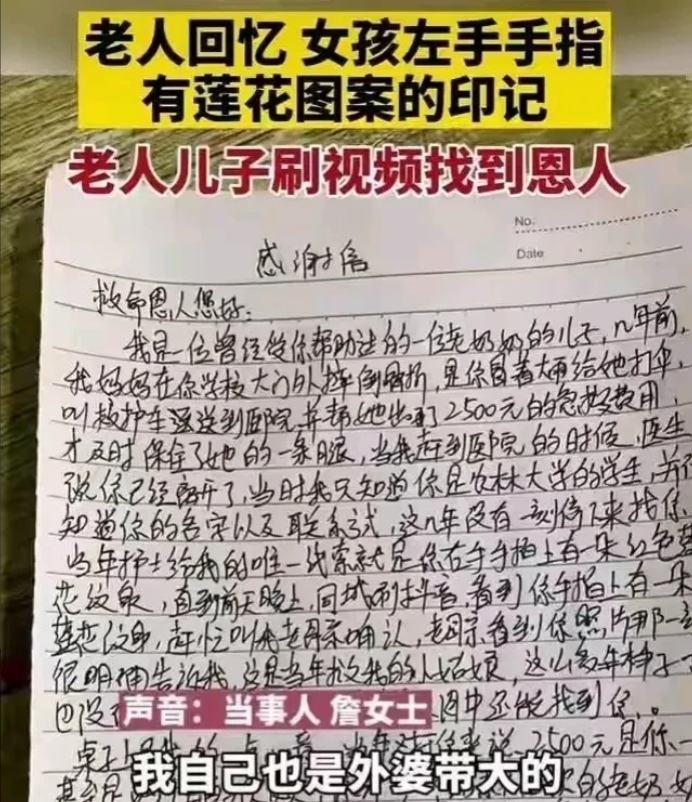 老人回忆 女孩左手手指
有莲花图案的印记
老人儿子刷视频找到恩人
No.
Date
感谢信
救命恩人您好：
我是一位曾经受你帮助过的一位老奶奶的儿子，几年前，
我妈妈在你学校大门外摔倒骨折，是你冒着大雨给她打伞，
叫救护车送送到医院，并帮她出了2500元的急救费用，
才及时保全了她的一条腿，当我赶到医院的时候，医生
说你已经离开了，当时我只知道你是农林大学的学生，并
知道你的名字以及联系式，这几年没有一刻停下来找你，
当年护士给我的唯一线索就是你右手手指上有一朵红色莲
花纹身，直到前天晚上，同城刷抖音，看到你手指上有一朵
莲花纹身，赶忙叫我老母亲确认，老母亲看到你照片那一
很明确告诉我，这是当年救我的人姑娘，这么多年
也没
中还能找到你。
2500元是你一
声音：当事人 詹女士
我自己也是外婆带大的